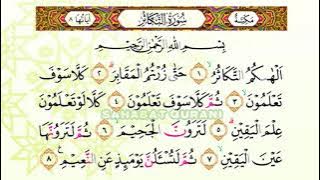 مكية سورة التكاثر اياتها ٨
بِسْمِ اللّٰهِ الرَّحْمٰنِ الرَّحِيْمِ
اَلْهٰىكُمُ التَّكَاثُرُۙ ١ حَتّٰى زُرْتُمُ الْمَقَابِرَۗ ٢ كَلَّا سَوْفَ
تَعْلَمُوْنَۙ ٣ ثُمَّ كَلَّا سَوْفَ تَعْلَمُوْنَ ٤ كَلَّا لَوْ تَعْلَمُوْنَ
SAHABAT QURANI
عِلْمَ الْيَقِيْنِۗ ٥ لَتَرَوُنَّ الْجَحِيْمَۙ ٦ ثُمَّ لَتَرَوُنَّهَا
عَيْنَ الْيَقِيْنِۙ ٧ ثُمَّ لَتُسْـَٔلُنَّ يَوْمَىِٕذٍ عَنِ النَّعِيْمِ ٨